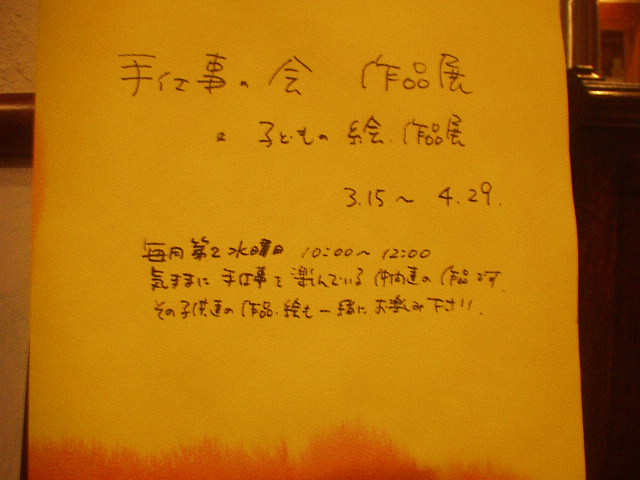 手仕事の会 作品展
& 子どもの絵.作品展
3.15～4.29.
毎月第2水曜日 10:00～12:00
気ままに手仕事を楽しんでいる仲間達の作品です.
その子供達の作品.絵も一緒にお楽み下さい!.